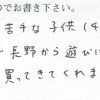 のでお書き下さい。
苦手な子供(4
長野から遊びに
買ってきてくれま